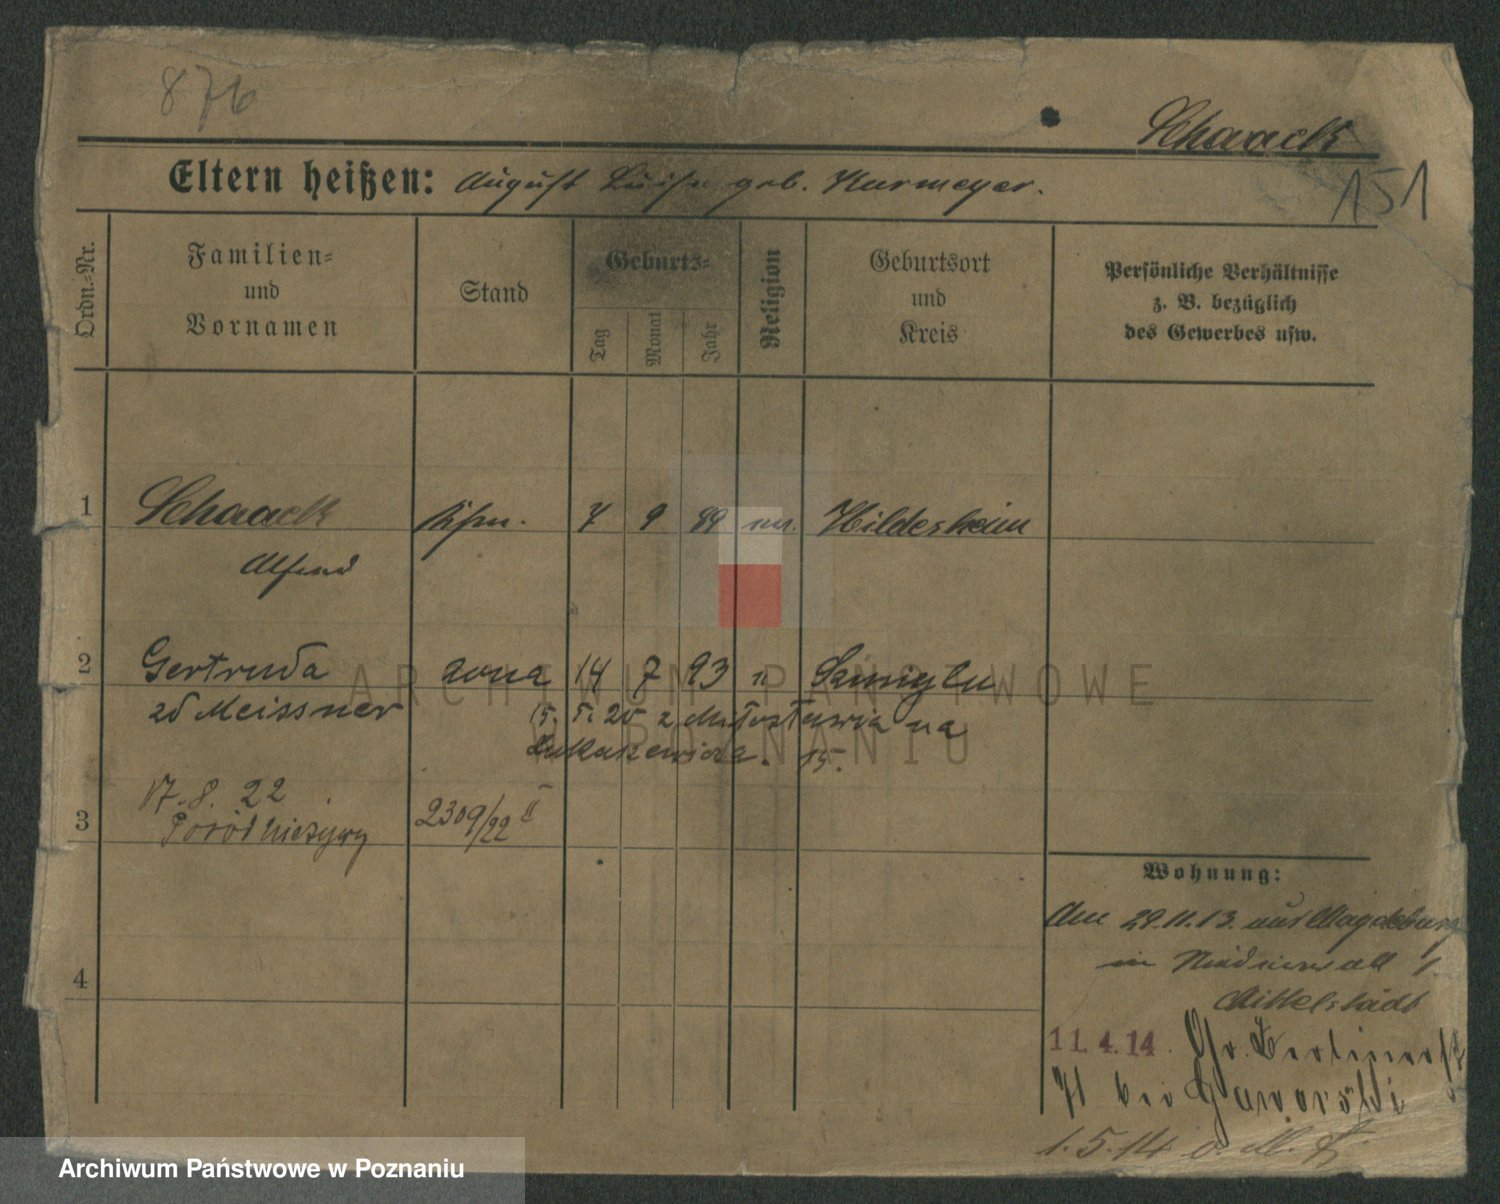 876
Schaack
Eltern heißen: August Luise geb. Kurmeyer.
151
Ordn.-Nr.
Familien-
und
Vornamen
Stand
Geburts-
Tag
Monat
Jahr
Religion
Geburtsort
und
Kreis
Persönliche Verhältnisse
z. B. bezüglich
des Gewerbes usw.
1 Schaack 7 9 89 Hildesheim
Alfred
2 Gertruda żona 14 7 93 "
zd Meissner 15. 5. 25 z na
15.
17. 8. 22
3 Poród nieżywy 2309/22 II
4
Wohnung:
Am 29.11.13. aus Magdeburg
in
Mittelstädt
11.4.14. Gr. Berlinerst
bei
1.5.14
ARCHIWUM PAŃSTWOWE
W POZNANIU
Archiwum Państwowe w Poznaniu